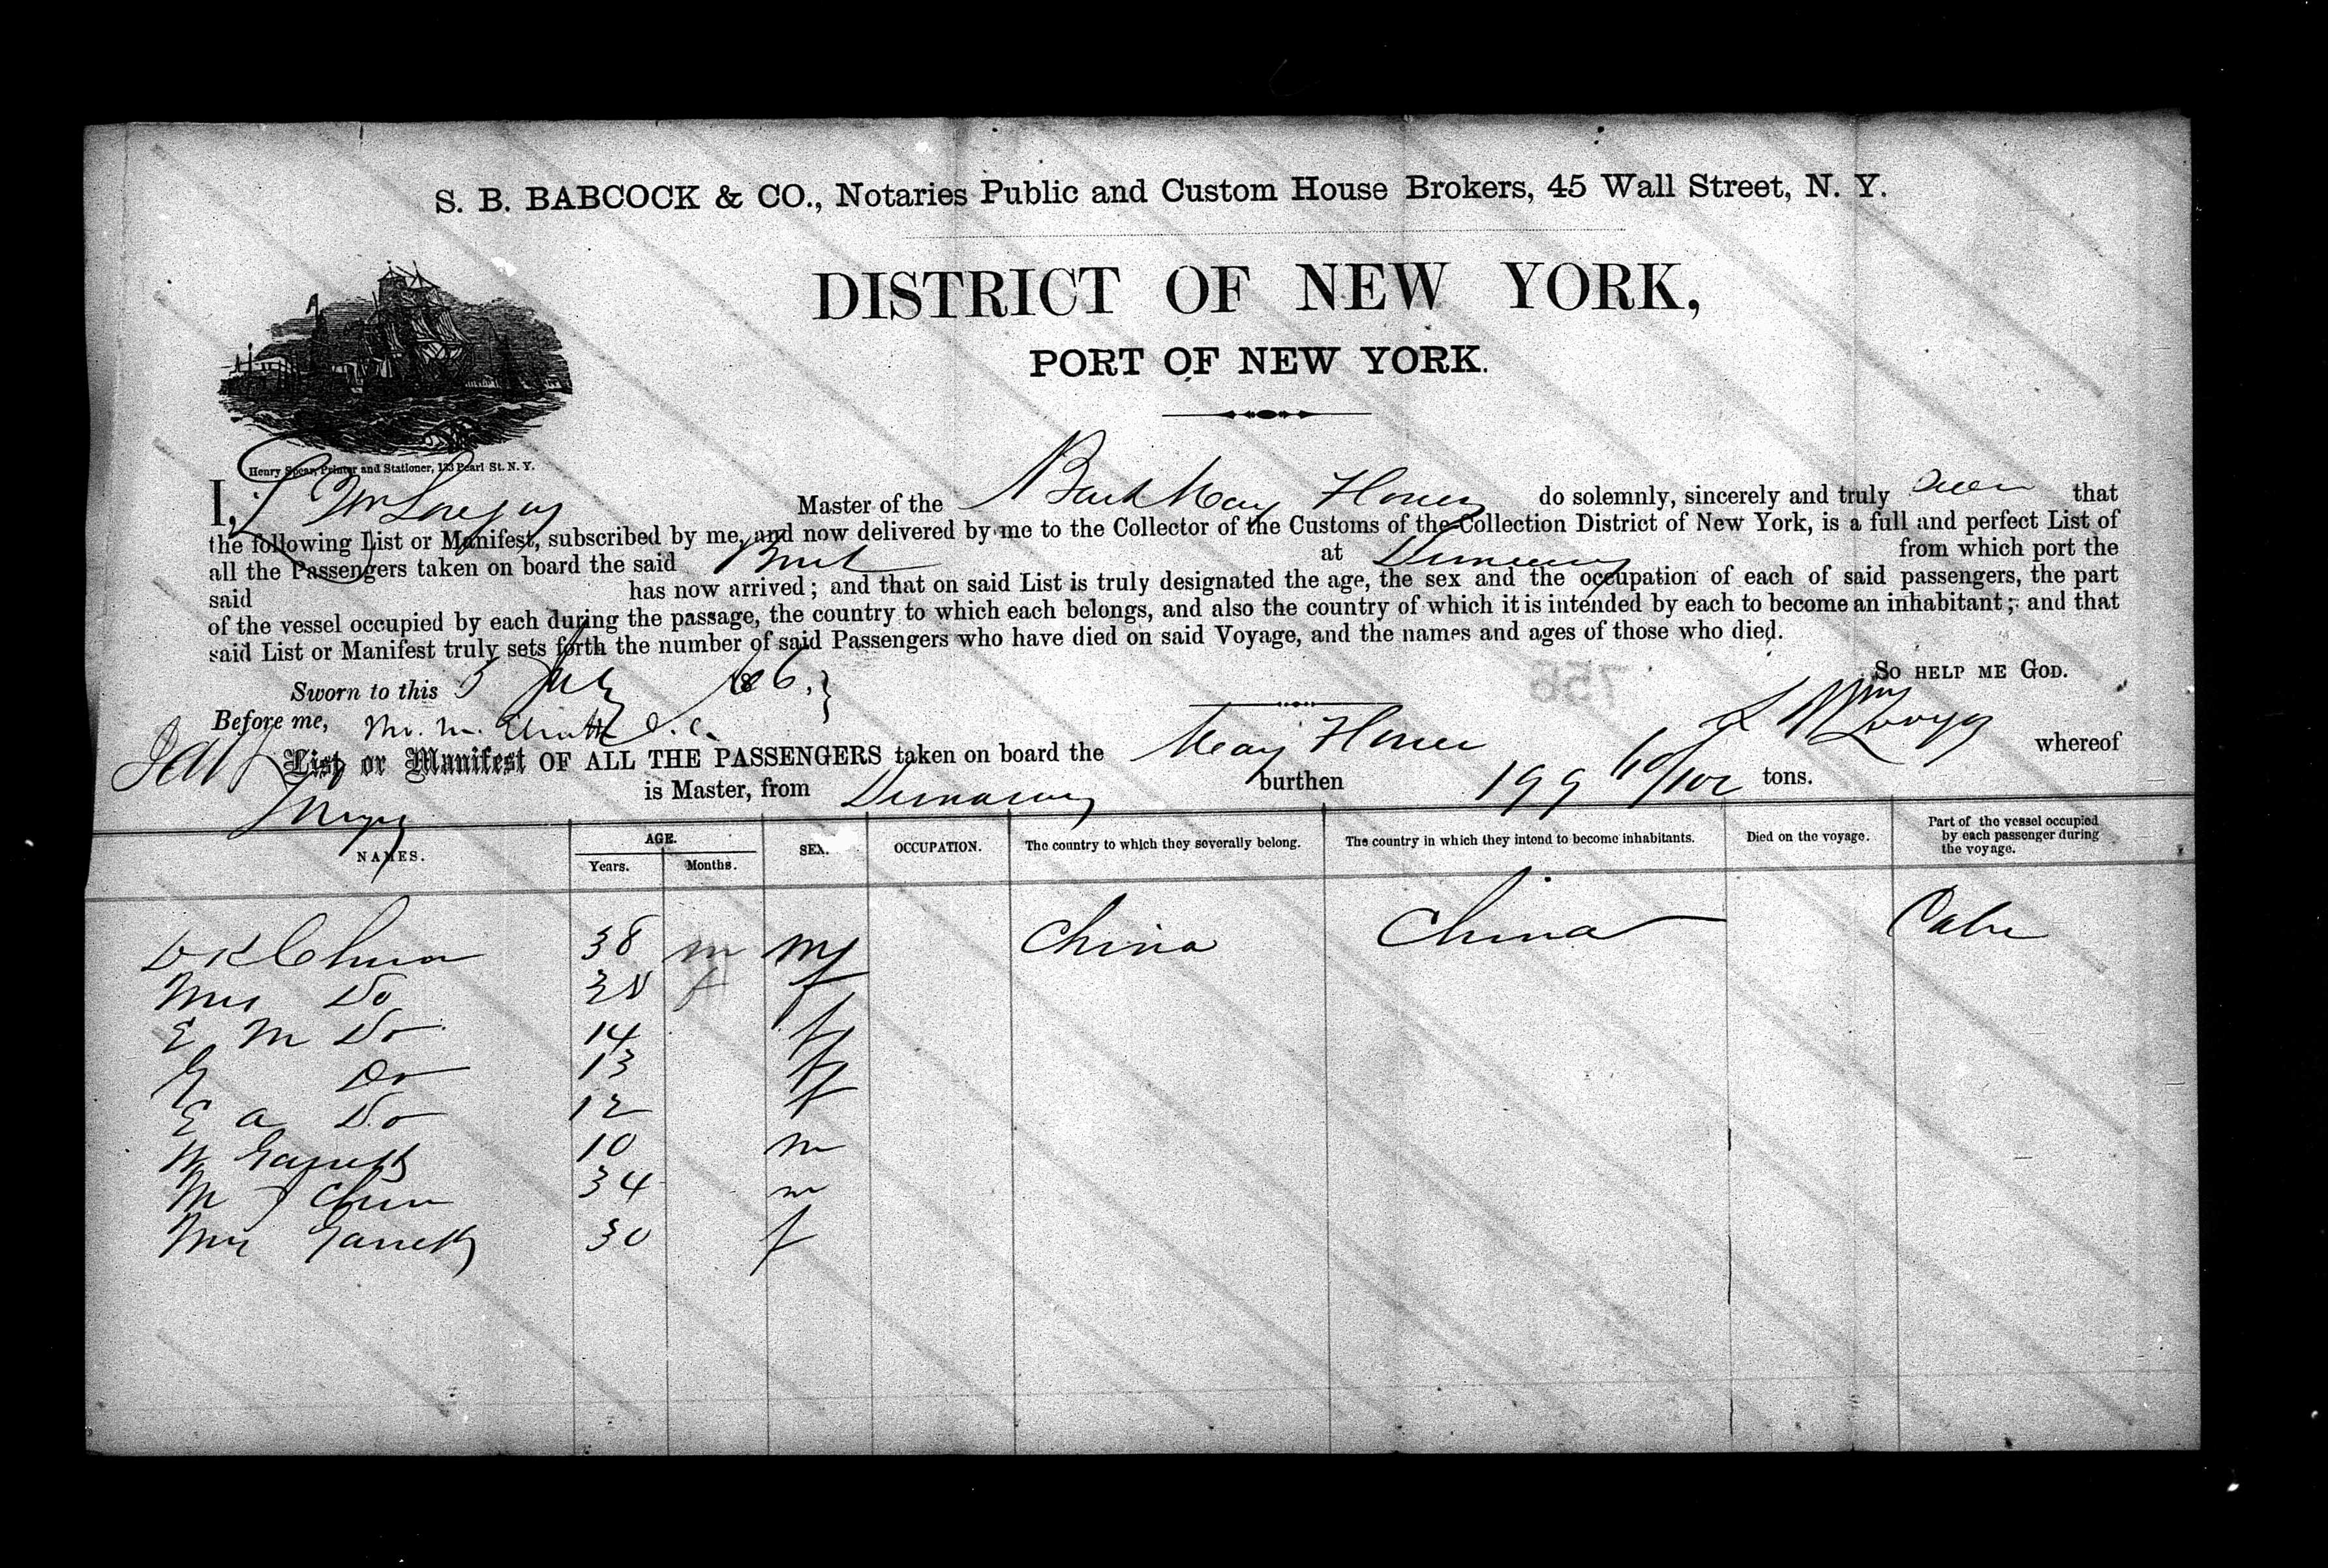 S. B. BABCOCK & CO., Notaries Public and Custom House Brokers, 45 Wall Street, N. Y.
DISTRICT OF NEW YORK,
PORT OF NEW YORK.
Henry Spear, Printer and Stationer, 133 Pearl St. N. Y.
I, Master of the Bark May Flower do solemnly, sincerely and truly that
the following List or Manifest, subscribed by me, and now delivered by me to the Collector of the Customs of the Collection District of New York, is a full and perfect List of
all the Passengers taken on board the said Bark at from which port the
said has now arrived; and that on said List is truly designated the age, the sex and the occupation of each of said passengers, the part
of the vessel occupied by each during the passage, the country to which each belongs, and also the country of which it is intended by each to become an inhabitant; and that
said List or Manifest truly sets forth the number of said Passengers who have died on said Voyage, and the names and ages of those who died.
SO HELP ME GOD.
756
Sworn to this July 186
Before me,
List or Manifest OF ALL THE PASSENGERS taken on board the May Flower whereof
is Master, from burthen 199 tons.
NAMES. AGE. Years. Months. SEX. OCCUPATION. The country to which they severally belong. The country in which they intend to become inhabitants. Died on the voyage. Part of the vessel occupied by each passenger during the voyage.
38 m m China China
Mrs Do f f
E M Do 14 f
Do 13 f
E a Do 12 f
W Garrett 10 m
M 34 m
Mrs Garrett 30 f